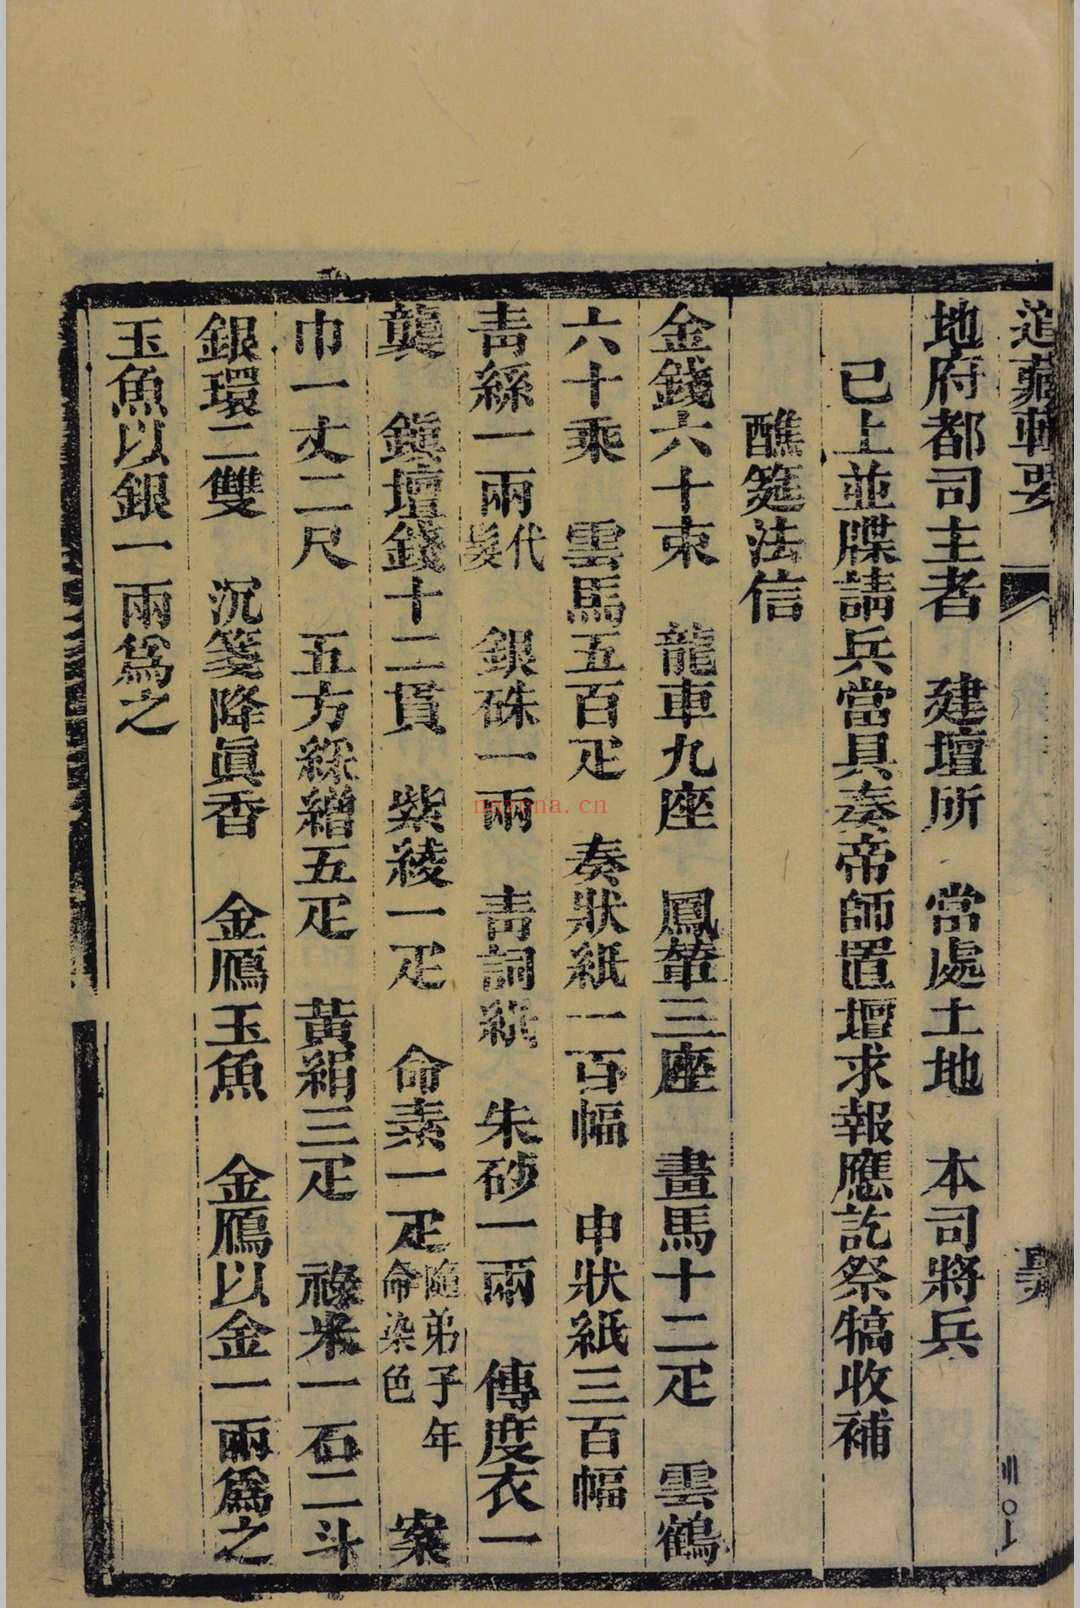 道藏輯要
地府都司主者　建壇所　當處土地　本司將兵
已上並牒請兵當具奏帝師置壇求報應訖祭犒收補
醮筵法信
金錢六十束　龍車九座　鳳輦三座　畫馬十二疋　雲鶴
六十乘　雲馬五百疋　奏狀紙一百幅　申狀紙三百幅
青絲一兩代髮　銀硃一兩　青詞紙　朱砂一兩　傳度衣一
襲　鎭壇錢十二貫　紫綾一疋　命素一疋隨弟子年命染色　案
巾一丈二尺　五方綵繒五疋　黃絹三疋　祿米一石二斗
銀環二雙　沉箋降眞香　金鴈玉魚　金鴈以金一兩爲之
玉魚以銀一兩爲之
nayona.cn